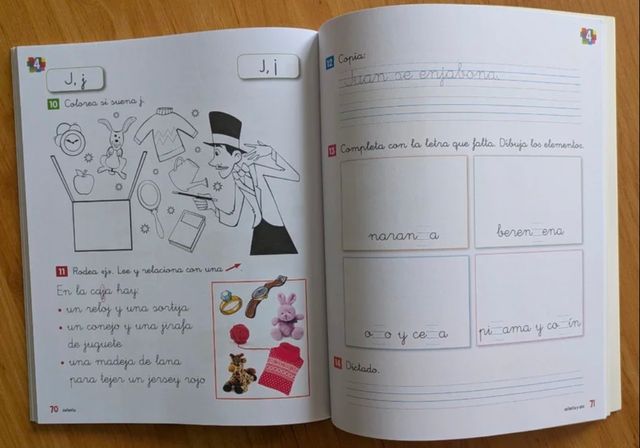 4
J, j
J, j
10 Colorea si suena j.
11 Rodea ej. Lee y relaciona con una
En la caja hay:
• un reloj y una sortija
• un conejo y una jirafa
de juguete
• una madeja de lana
para tejer un jersey rojo
70
4
12 Copia:
Juan se enjabona
13 Completa con la letra que falta. Dibuja los elementos.
naran_a
beren_ena
o_o y ce_a
pi_ama y co_ín
14 Dictado.
71